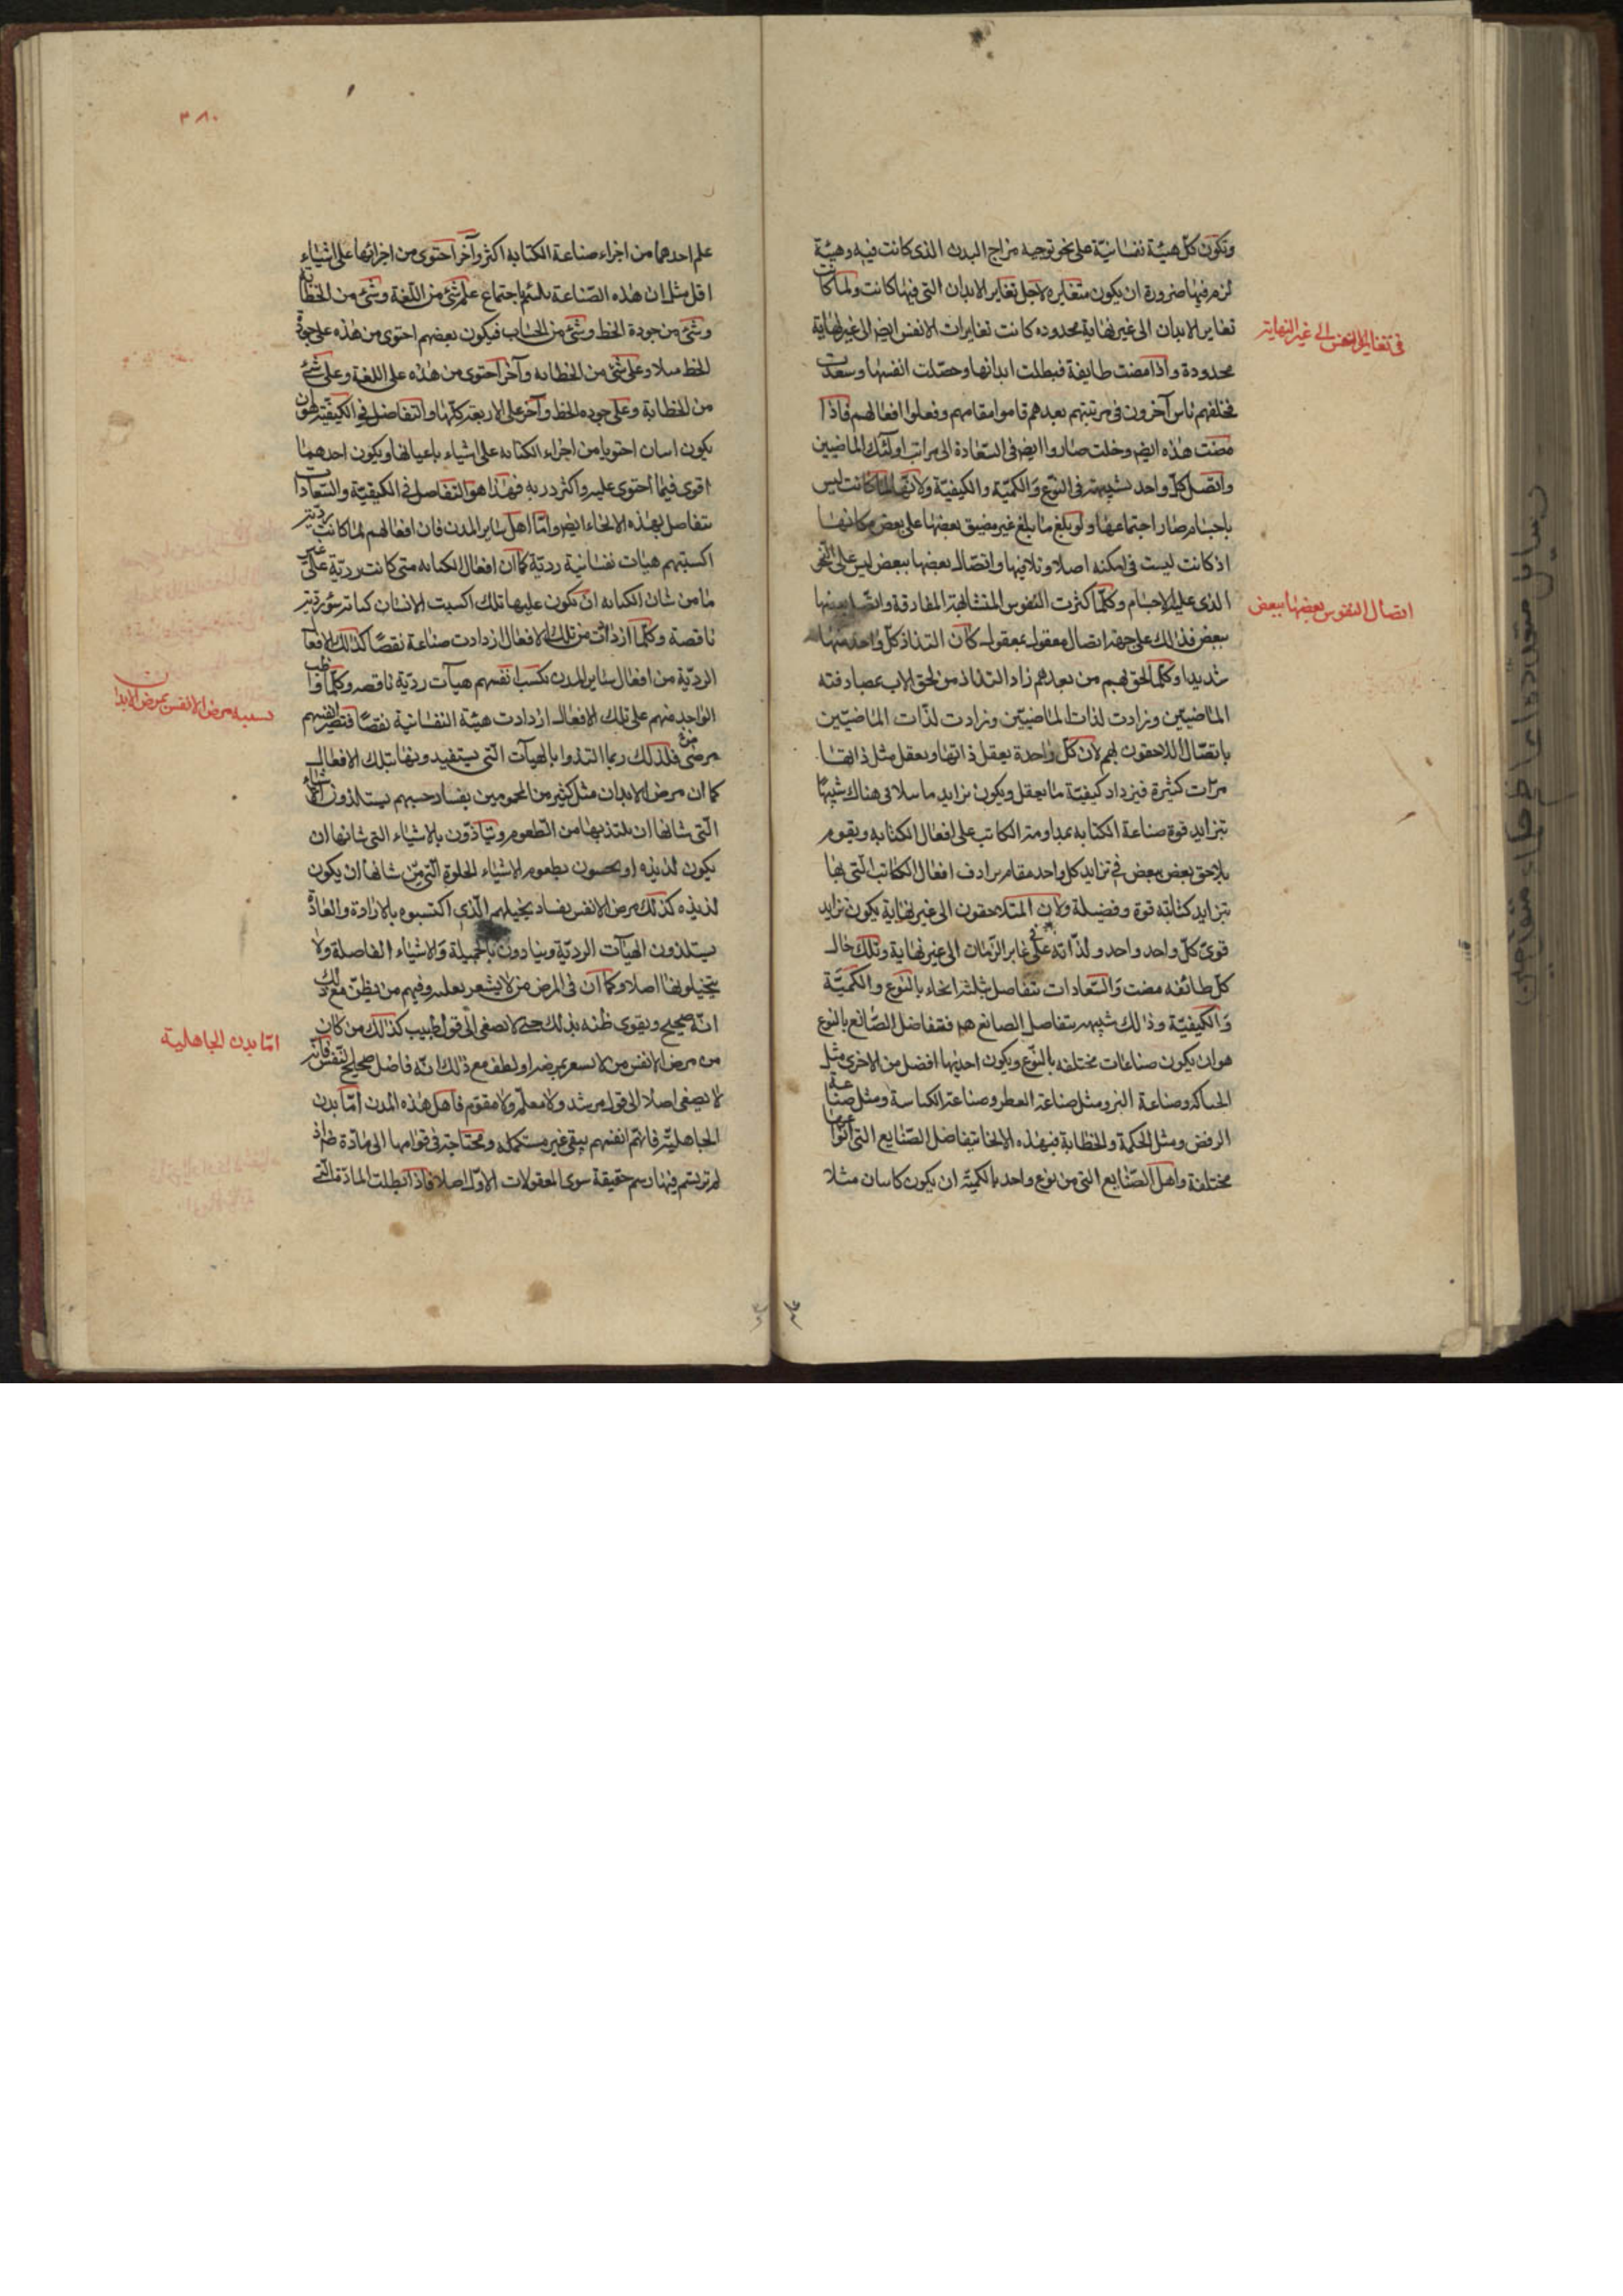 وتكون كلّ هيئة نفسانيّة على نحو توجبه مزاج البدن الذى كانت فيه وهيئة
لزم فيها ضرورة ان يكون متغايره لاجل تغاير الابدان التى فيها كانت ولما كانت
تغاير الابدان الى غير نهاية محدوده كانت تغايرات الانفس ايض الى غير نهاية
محدودة واذا مضت طايفة فبطلت ابدانها وحصّلت انفسها وسعدت
فخلفهم ناس آخرون فى مرتبتهم بعدهم قاموا مقامهم وفعلوا افعالهم فاذا
مضت هذه ايض وخلت صاروا ايض فى السّعادة الى مراتب اولئك الماضيين
واتصل كلّ واحد بشبيهه فى النّوع والكميّة والكيفيّة ولانّها لما كانت ليس
باجسام صار اجتماعها ولو بلغ ما بلغ غير مضيق بعضها على بعض مكانها
اذ كانت ليست فى امكنه اصلا وتلاقيها واتصال بعضها ببعض ليس على النحو
الذى عليه الاجسام وكلّما كثرت النّفوس المتشابهة المفارقة واتصل بعضها
ببعض فذلك على جهة اتصال معقول بمعقول كان التذاذ كلّ واحد منها
شديدا وكلّما لحق بهم من بعدهم زاد التذاذ من لحق الان بمصادفته
الماضيين وزادت لذات الماضيين وزادت لذّات الماضيّين
باتصال اللاحقون بهم لان كلّ واحدة يعقل ذاتها ويعقل مثل ذاتها
مرّات كثيرة فيزداد كيفيّة ما يعقل ويكون تزايد ما يتلاقى هناك شبيها
بتزايد قوة صناعة الكتابه بمداومة الكاتب على افعال الكتابه ويقوم
تلاحق بعض ببعض فى تزايد كل واحد مقام ترادف افعال الكاتب الّتى بها
تتزايد كتابته قوة وفضيلة ولان المتلاحقون الى غير نهاية يكون تزايد
قوى كلّ واحد واحد ولذّاته على غابر الزّمان الى غير نهاية وتلك حال
كلّ طائفه مضت والسّعادات تتفاضل بثلثة انحاء بالنّوع والكميّة
والكيفيّة وذلك شبيه بتفاضل الصانع هم فتفاضل الصّنائع بالنوع
هو ان يكون صناعات مختلفه بالنّوع ويكون احديها افضل من الاخرى مثل
الحياكه وصناعة البز ومثل صناعة العطر وصناعة الكناسة ومثل صناعة
الرقص ومثل الحكمة والخطابة فبهذه الانحاء يتفاضل الصّنايع التى انواعها
مختلفة واهل الصّنايع التى من نوع واحد بالكميّة ان يكون كاتبان مثلا
فى تغاير الانفس الى غير النهاية
اتصال النفوس بعضها ببعض
٣٨٠
علم احدهما من اجزاء صناعة الكتابه اكثر وآخر احتوى من اجزائها على اشياء
اقل مثل ان هذه الصّناعة تلتئم باجتماع علم شئ من اللّغة وشئ من الخطابة
وشئ من جودة الخط وشئ من الحساب فيكون بعضهم احتوى من هذه على جودة
الخط مثلا وعلى شئ من الخطابه وآخر احتوى من هذه على اللغة وعلى شئ
من الخطابة وعلى جوده الخط وآخر على الاربعة كلّها والتّفاضل فى الكيفيّة هو ان
يكون اسان احتويا من اجزاء الكتابه على اشياء باعيانها ويكون احدهما
اقوى فيما احتوى عليه واكثر دربه فهذا هو التّفاضل فى الكيفيّة والسّعادات
تتفاضل بهذه الانحاء ايض وامّا اهل ساير المدن فان افعالهم لما كانت رديّة
اكسبتهم هيات نفسانية رديّة كما ان افعال الكتابه متى كانت رديّة على غير
ما من شان الكتابه ان تكون عليها تلك اكسبت الانسان كتابة سوء رديّة
ناقصة وكلّما ازدادت من تلك الافعال ازدادت صناعة نقصا كذلك الافعال
الرديّة من افعال ساير المدن تكسب انفسهم هيآت رديّة ناقصه وكلّما واظب
الواحد منهم على تلك الافعال ازدادت هيئة النفسانية نقصًا فتصير انفسهم
مرضى فلذلك ربما التذوا بالهيآت الّتى يستفيدونها بتلك الافعال
كما ان مرضى الابدان مثل كثير من المحمومين بفساد حسهم يستلذون الاشياء
الّتى شانها ان يلتذ بها من الطعوم ويتأذون بالاشياء التى شانها ان
يكون لذيذه او يحسون بطعوم الاشياء الحلوة الّتى من شانها ان يكون
لذيذه كذلك مرض الانفس بفساد تخيلهم الّذى اكتسبوه بالارادة والعادة
يستلذون الهيآت الرديّة ويتأذون بالجميلة والاشياء الفاضلة ولا
يتخيلونها اصلا وكما ان فى المرض من لا يشعر بعلته وفيهم من يظنّ مع ذلك
انّه صحيح ويقوى ظنه بذلك حتى لا يصغى الى قول طبيب كذلك من كان
من مرض الانفس من لا يشعر بمرضه ويظن مع ذلك انّه فاضل صحيح النّفس فانه
لا يصغى اصلا الى قول مرشد ولا معلّم ولا مقوّم فاهل هذه المدن امّا مدن
الجاهليّة فانهم انفسهم يبقى غير مستكمله ومحتاجة فى قوامها الى مادّة ضرورة اذ
لم ترتسم فيها رسم حقيقة سوى المعقولات الاوّل اصلا فاذا بطلت المادّة التى
مرض الانفس بمرض الابدان
امّا مدن الجاهلية